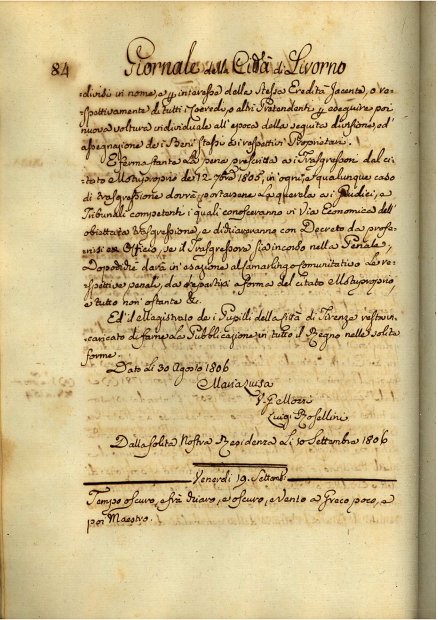 84 Giornale della Città di Livorno
divisi in nome, e per interesse della Stessa Eredità Jacente, o re-
spettivamente di tutti i Coeredi, o altri Pretendenti per eseguire poi
nuova voltura individuale all'epoca della seguita divisione, od
assegnazione dei Beni stabili ai respettivi Proprietari.
E ferma stante la pena prescritta ai Trasgressori dal ci-
tato Motuproprio de' 12 9bre 1805, in ogni, e qualunque caso
di trasgressione dovrà portarsene la querela ai Giudici, e
Tribunali competenti i quali conosceranno in Via Economica dell'
obiettata trasgressione, e dichiareranno con Decreto da profe-
rirsi ex Officio, se il Trasgressore sia incorso nella Penale,
Dopodiché darà in esazione al Camarlingo Comunitativo le re-
spettive penali, da repartirsi a forma del citato Motuproprio
e tutto non ostante &c.
Ed il Magistrato de' Pupilli della Città di Firenze resta in-
caricato di farne la Pubblicazione in tutto il Regno nelle solite
forme.
Dato li 30 Agosto 1806
Maria Luisa
V. Pelloni
Luigi Rosellini
Dalla Solita Nostra Residenza Li 10 Settembre 1806
Venerdì 19. Settemb:
Tempo oscuro, e fra chiaro, e oscuro, e Vento a Greco poco, e
poi Maestro.